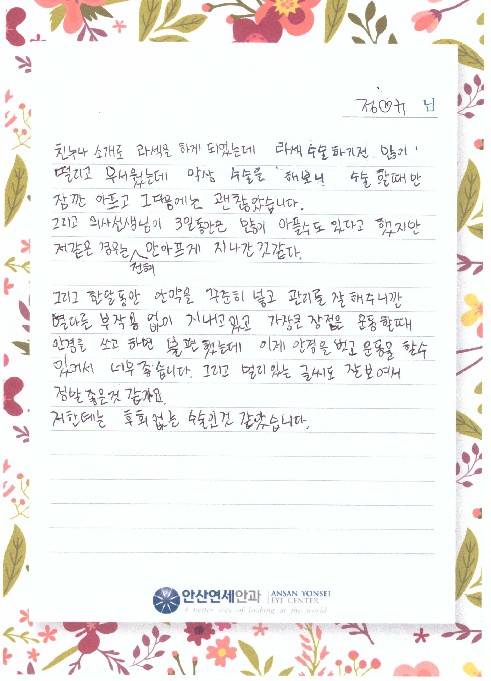 정♡규 님
친누나 소개로 라섹을 하게 되었는데 라섹 수술하기전 많이
떨리고 무서웠는데 막상 수술을 해보니 수술 할때만
잠깐 아프고 그다음에는 괜찮았습니다.
그리고 의사선생님이 3일동안은 많이 아플수도 있다고 했지만
저같은 경우는 전혀 안아프게 지나간것같다.
그리고 한달동안 안약을 꾸준히 넣고 관리를 잘 해주니깐
별다른 부작용 없이 지내고있고 가장큰 장점은 운동할때
안경을 쓰고 하면 불편했는데 이제 안경을 벗고 운동을 할수
있어서 너무좋습니다. 그리고 멀리있는 글씨도 잘보여서
정말 좋은것 같아요.
저한테는 후회없는 수술인것 같았습니다.
안산연세안과 ANSAN YONSEI
EYE CENTER
A better way of looking at the world